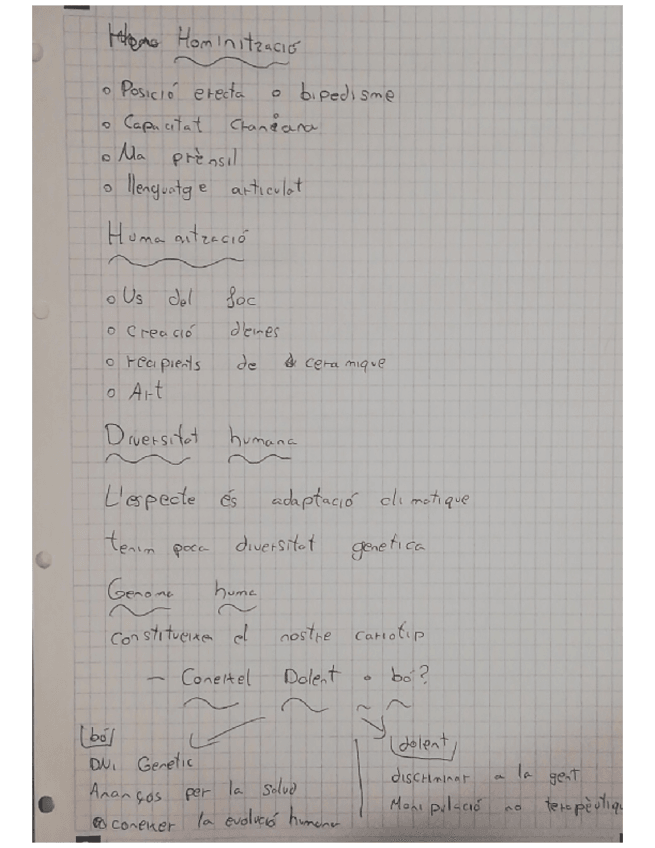 Hominització
Posició erecta o bipedisme
Capacitat craniana
Ma prènsil
llenguatge articulat
Humanització
Us del foc
Creació d'eines
recipients de ceramique
Art
Diversitat humana
L'especte és adaptació climatique
tenim poca diversitat genetica
Genoma huma
Constitueixen el nostre cariotip
– Coneixel Dolent o bó?
bó
DNI Genetic
Avanços per la salud
coneixer la evolució humana
dolent
discriminar a la gent
Manipulació no terapèutique